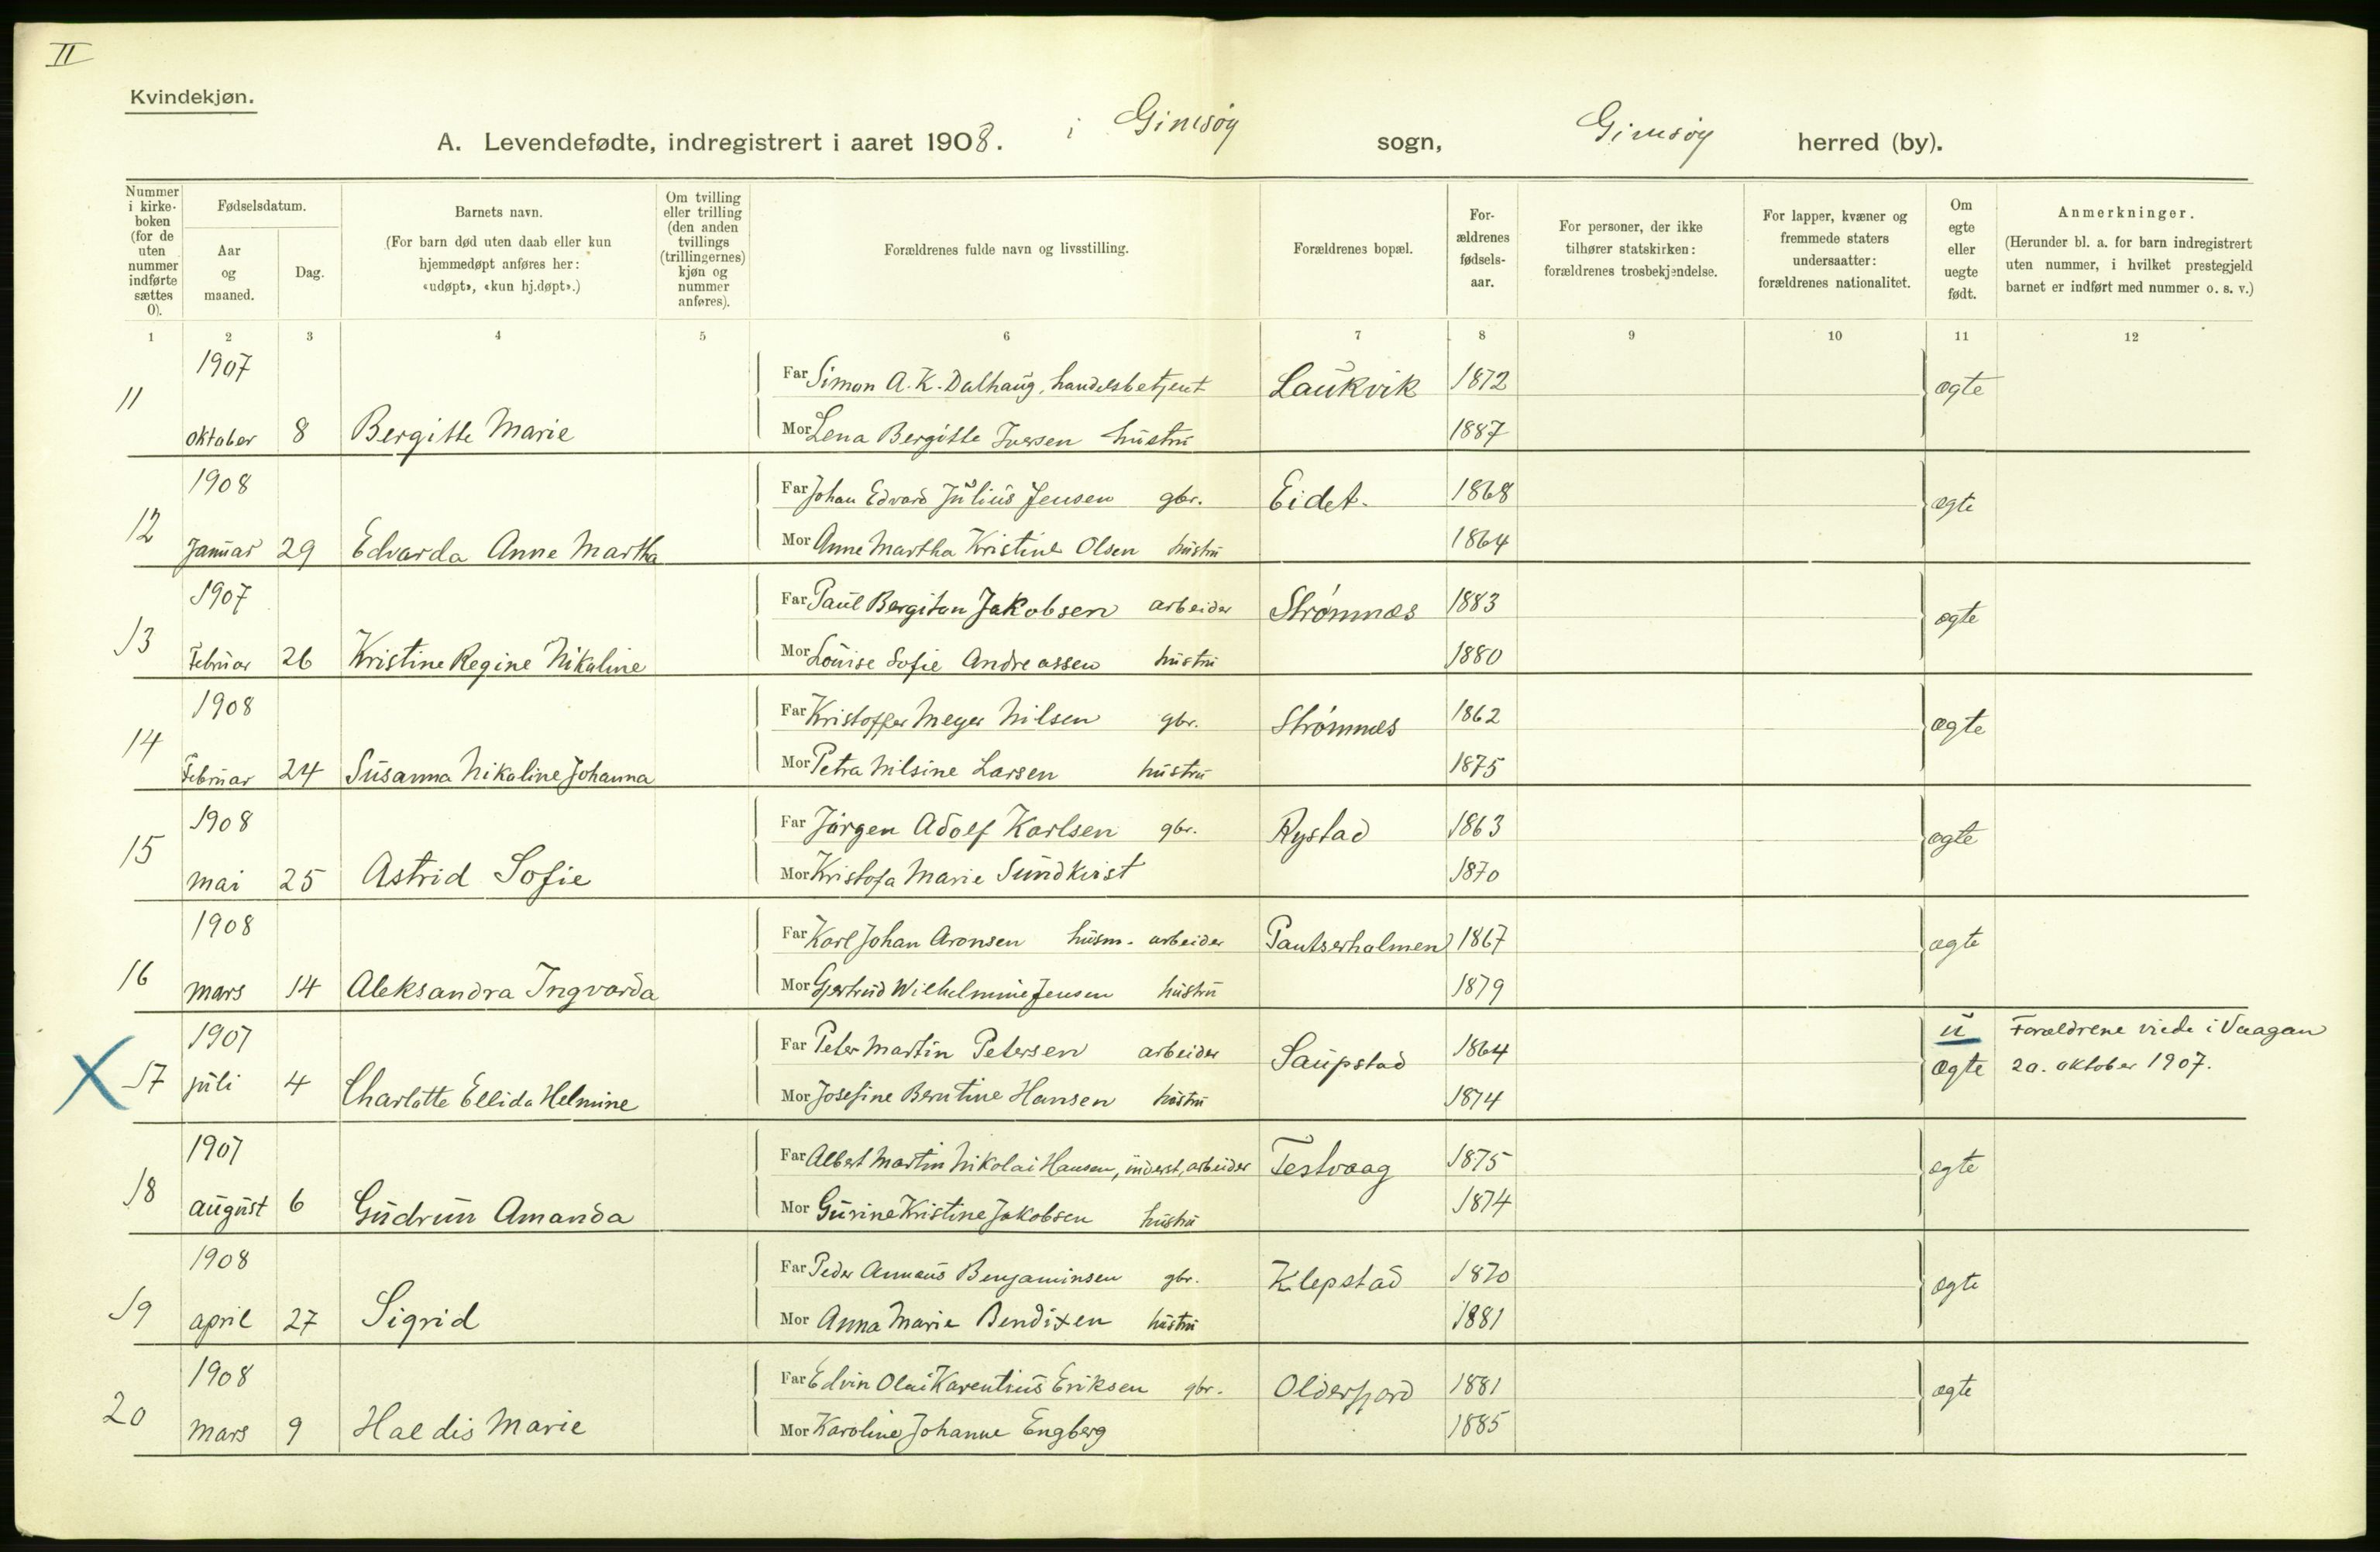 II
Kvindekjøn.
A. Levendefødte, indregistrert i aaret 1908. i Gimsøy sogn, Gimsøy herred (by).
Nummer i kirke- boken (for de uten nummer indførte sættes 0).
Fødselsdatum.
Aar og maaned.
Dag.
Barnets navn.
(For barn død uten daab eller kun hjemmedøpt anføres her: «udøpt», «kun hj.døpt».)
Om tvilling eller trilling (den anden tvillings (trillingernes) kjøn og nummer anføres).
Forældrenes fulde navn og livsstilling.
Forældrenes bopæl.
For- ældrenes fødsels- aar.
For personer, der ikke tilhører statskirken: forældrenes trosbekjendelse.
For lapper, kvæner og fremmede staters undersaatter: forældrenes nationalitet.
Om egte eller uegte født.
Anmerkninger.
(Herunder bl. a. for barn indregistrert uten nummer, i hvilket prestegjeld barnet er indført med nummer o. s. v.)
1 2 3 4 5 6 7 8 9 10 11 12
1907 Far Simon A. K. Dalhaug, handelsbetjent Laukvik 1872 ægte
11 oktober 8 Bergitte Marie Mor Lena Bergitte Iversen hustru 1887
1908 Far Johan Edvard Julius Jensen gbr. Eidet. 1868 ægte
12 Januar 29 Edvarda Anne Martha Mor Anne Martha Kristine Olsen hustru 1864
1907 Far Paul Bergiton Jakobsen arbeider Strømnæs 1883 ægte
13 Februar 26 Kristine Regine Nikoline Mor Louise Sofie Andreassen hustru 1880
1908 Far Kristoffer Meyer Nilsen gbr. Strømnæs 1862 ægte
14 Februar 24 Susanna Nikoline Johanna Mor Petra Nilsine Larsen hustru 1875
1908 Far Jørgen Adolf Karlsen gbr. Rystad 1863 ægte
15 mai 25 Astrid Sofie Mor Kristofa Marie Sundkvist 1870
1908 Far Karl Johan Aronsen husm. arbeider Pantserholmen 1867 ægte
16 mars 14 Aleksandra Ingvarda Mor Gjertrud Wilhelmine Jensen hustru 1879
1907 Far Peter Martin Petersen arbeider Saupstad 1864 u Forældrene viede i Vaagan
X 17 juli 4 Charlotte Ellida Helmine Mor Josefine Berntine Hansen hustru 1874 ægte 20. oktober 1907.
1907 Far Albert Martin Nikolai Hansen, inderst, arbeider Festvaag 1875 ægte
18 august 6 Gudrun Amanda Mor Gurine Kristine Jakobsen hustru 1874
1908 Far Peder Annæus Benjaminsen gbr. Klepstad 1870 ægte
19 april 27 Sigrid Mor Anna Marie Bendixen hustru 1881
1908 Far Edvin Olai Karentius Eriksen gbr. Olderfjord 1881 ægte
20 mars 9 Haldis Marie Mor Karoline Johanne Engberg 1885